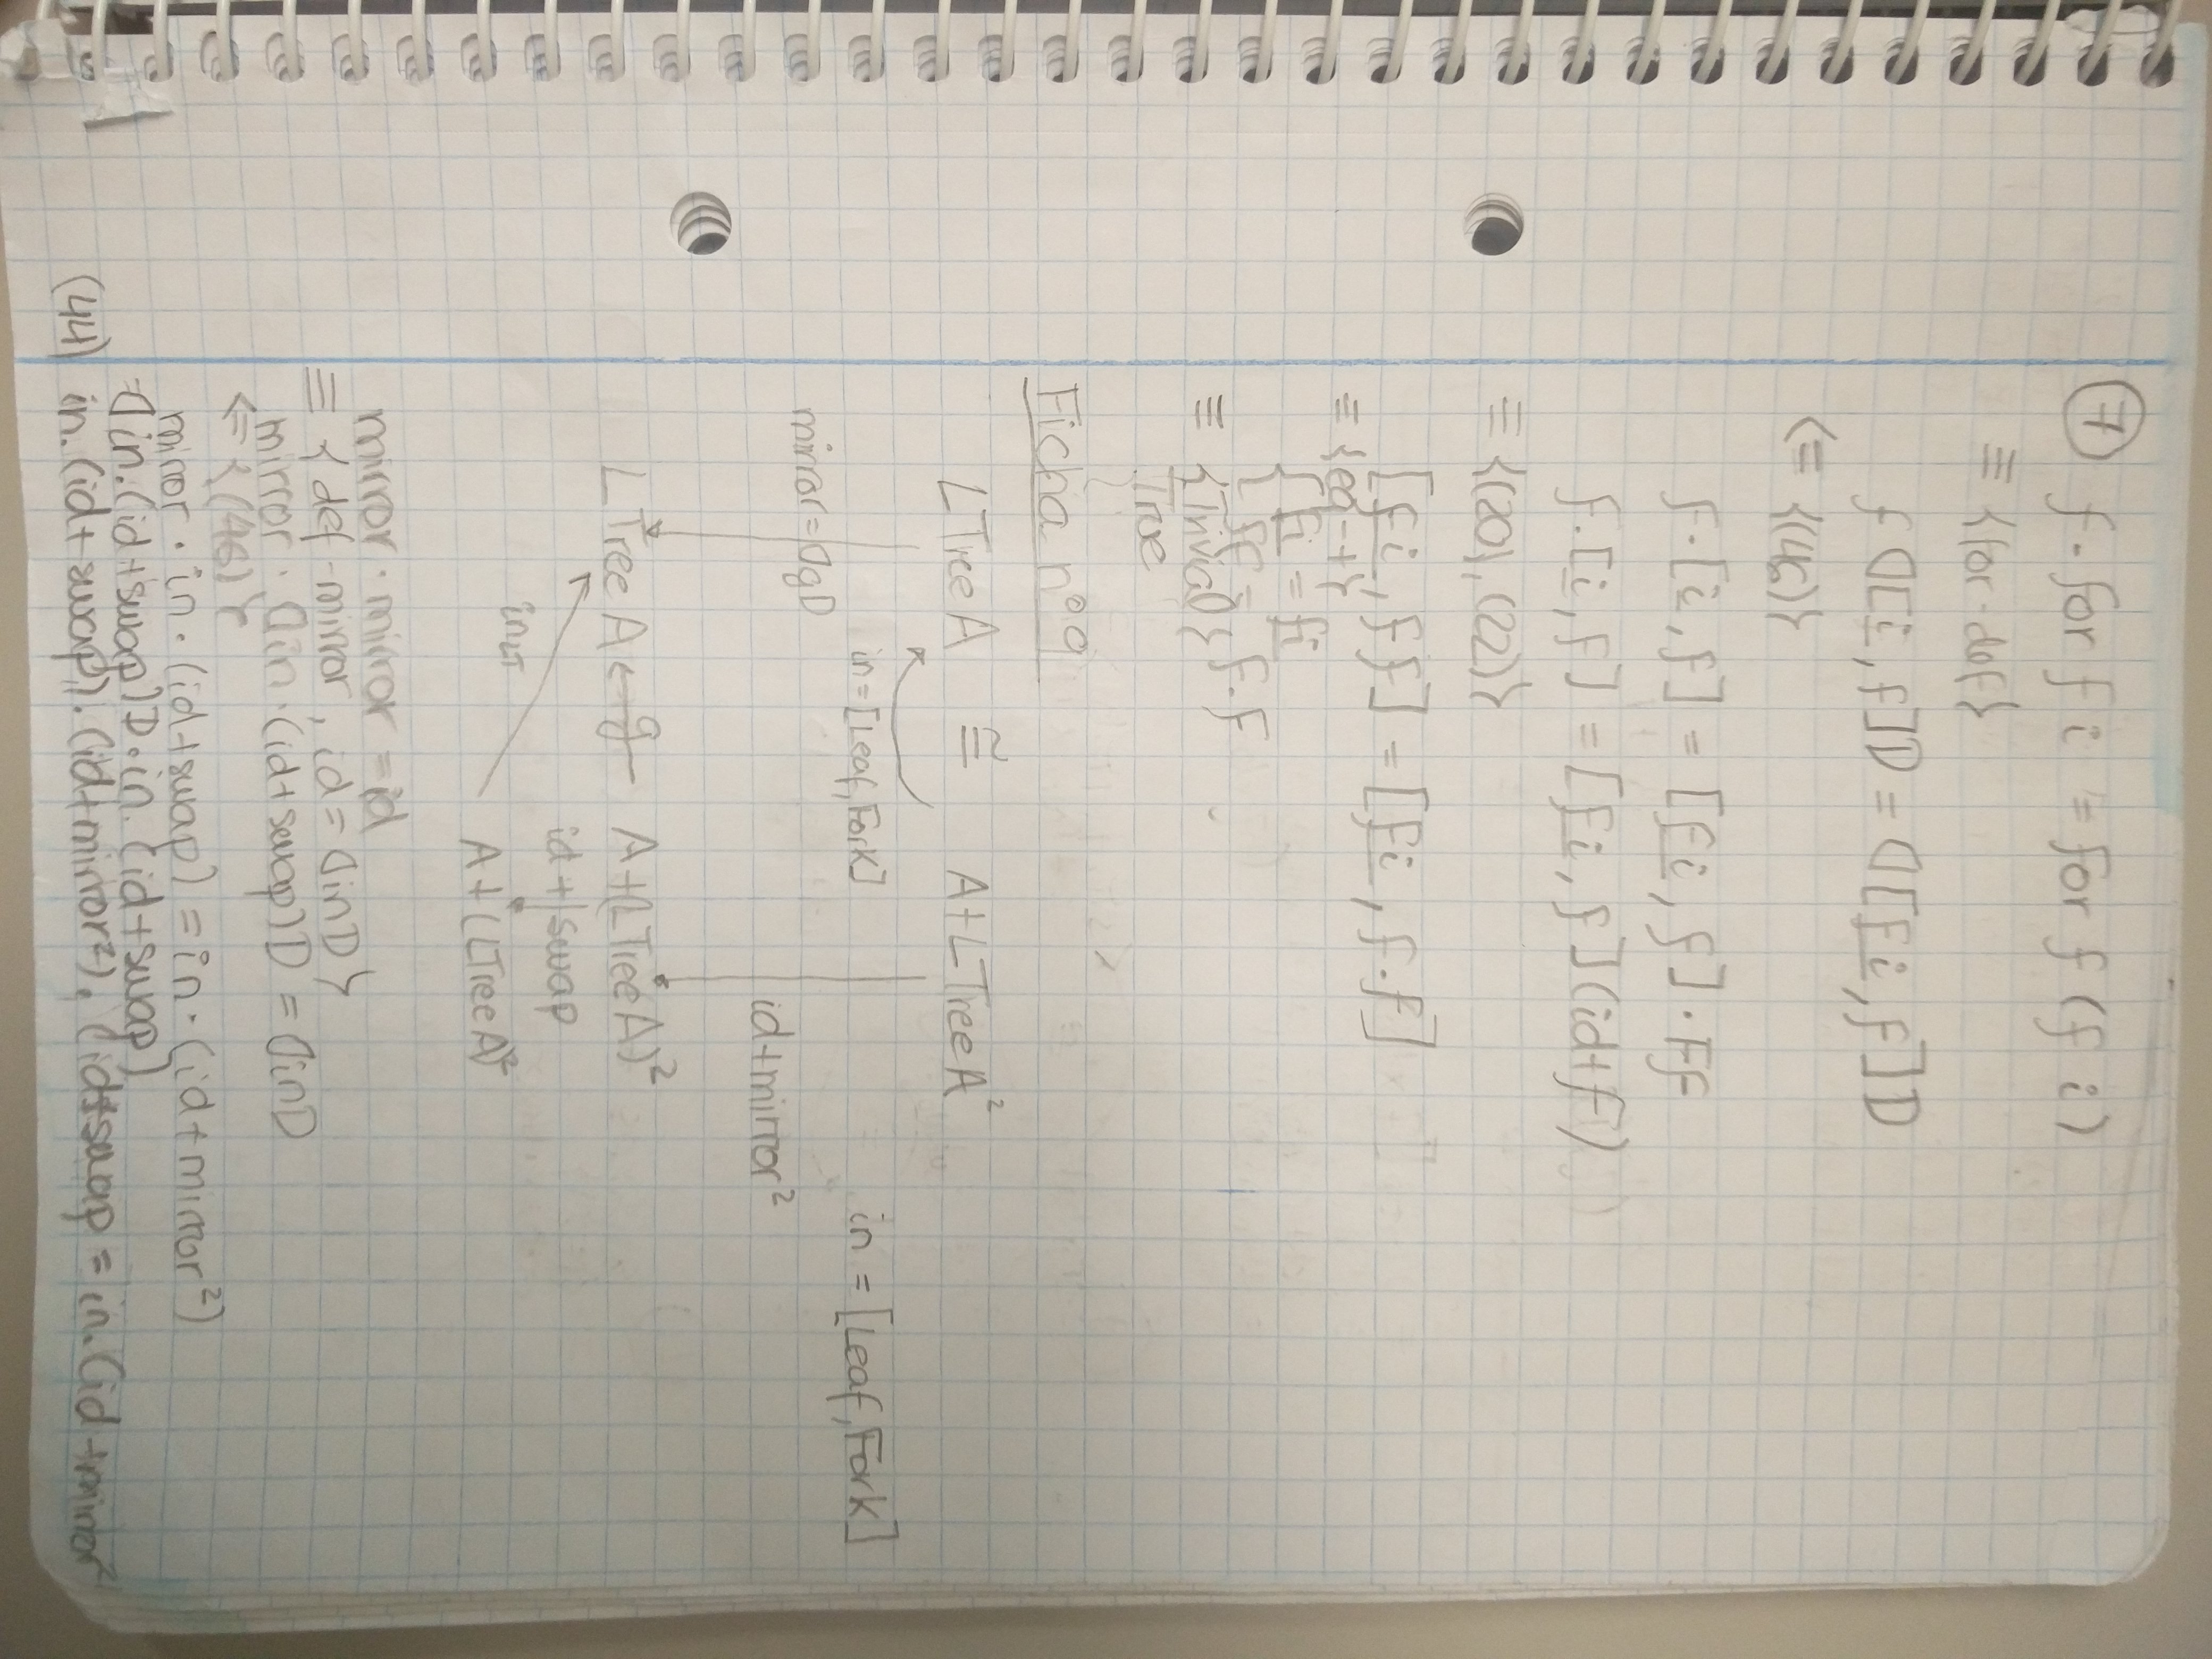 7 f.for f i = for f (f i)
≡ {for-def}
f ⦇[i, f]⦈ = ⦇[f i, f]⦈
<= {(46)}
f.[i, f] = [f i, f].Ff
f.[i, f] = [f i, f](id+f)
≡ {(20), (22)}
[f i, f f] = [f i, f.f]
≡ {eq-+}
{ f i = f i
ff = f.f
≡ {Trivial}
True
Ficha nº9
LTree A ≅ A+LTree A²
in=[Leaf,Fork]
in = [Leaf,Fork]
mirror=⦇g⦈
id+mirror²
LTree A ← g — A+(LTree A)²
id + swap
in LT
A+(LTree A)²
mirror . mirror = id
≡ {def-mirror, id=⦇in⦈}
mirror . ⦇in.(id+swap)⦈ = ⦇in⦈
<= {(46)}
mirror . in . (id+swap) = in . (id+mirror²)
=⦇in.(id+swap)⦈.in.(id+swap)
(44) in.(id+swap).(id+mirror²).(id+swap = in.(id+mirror²